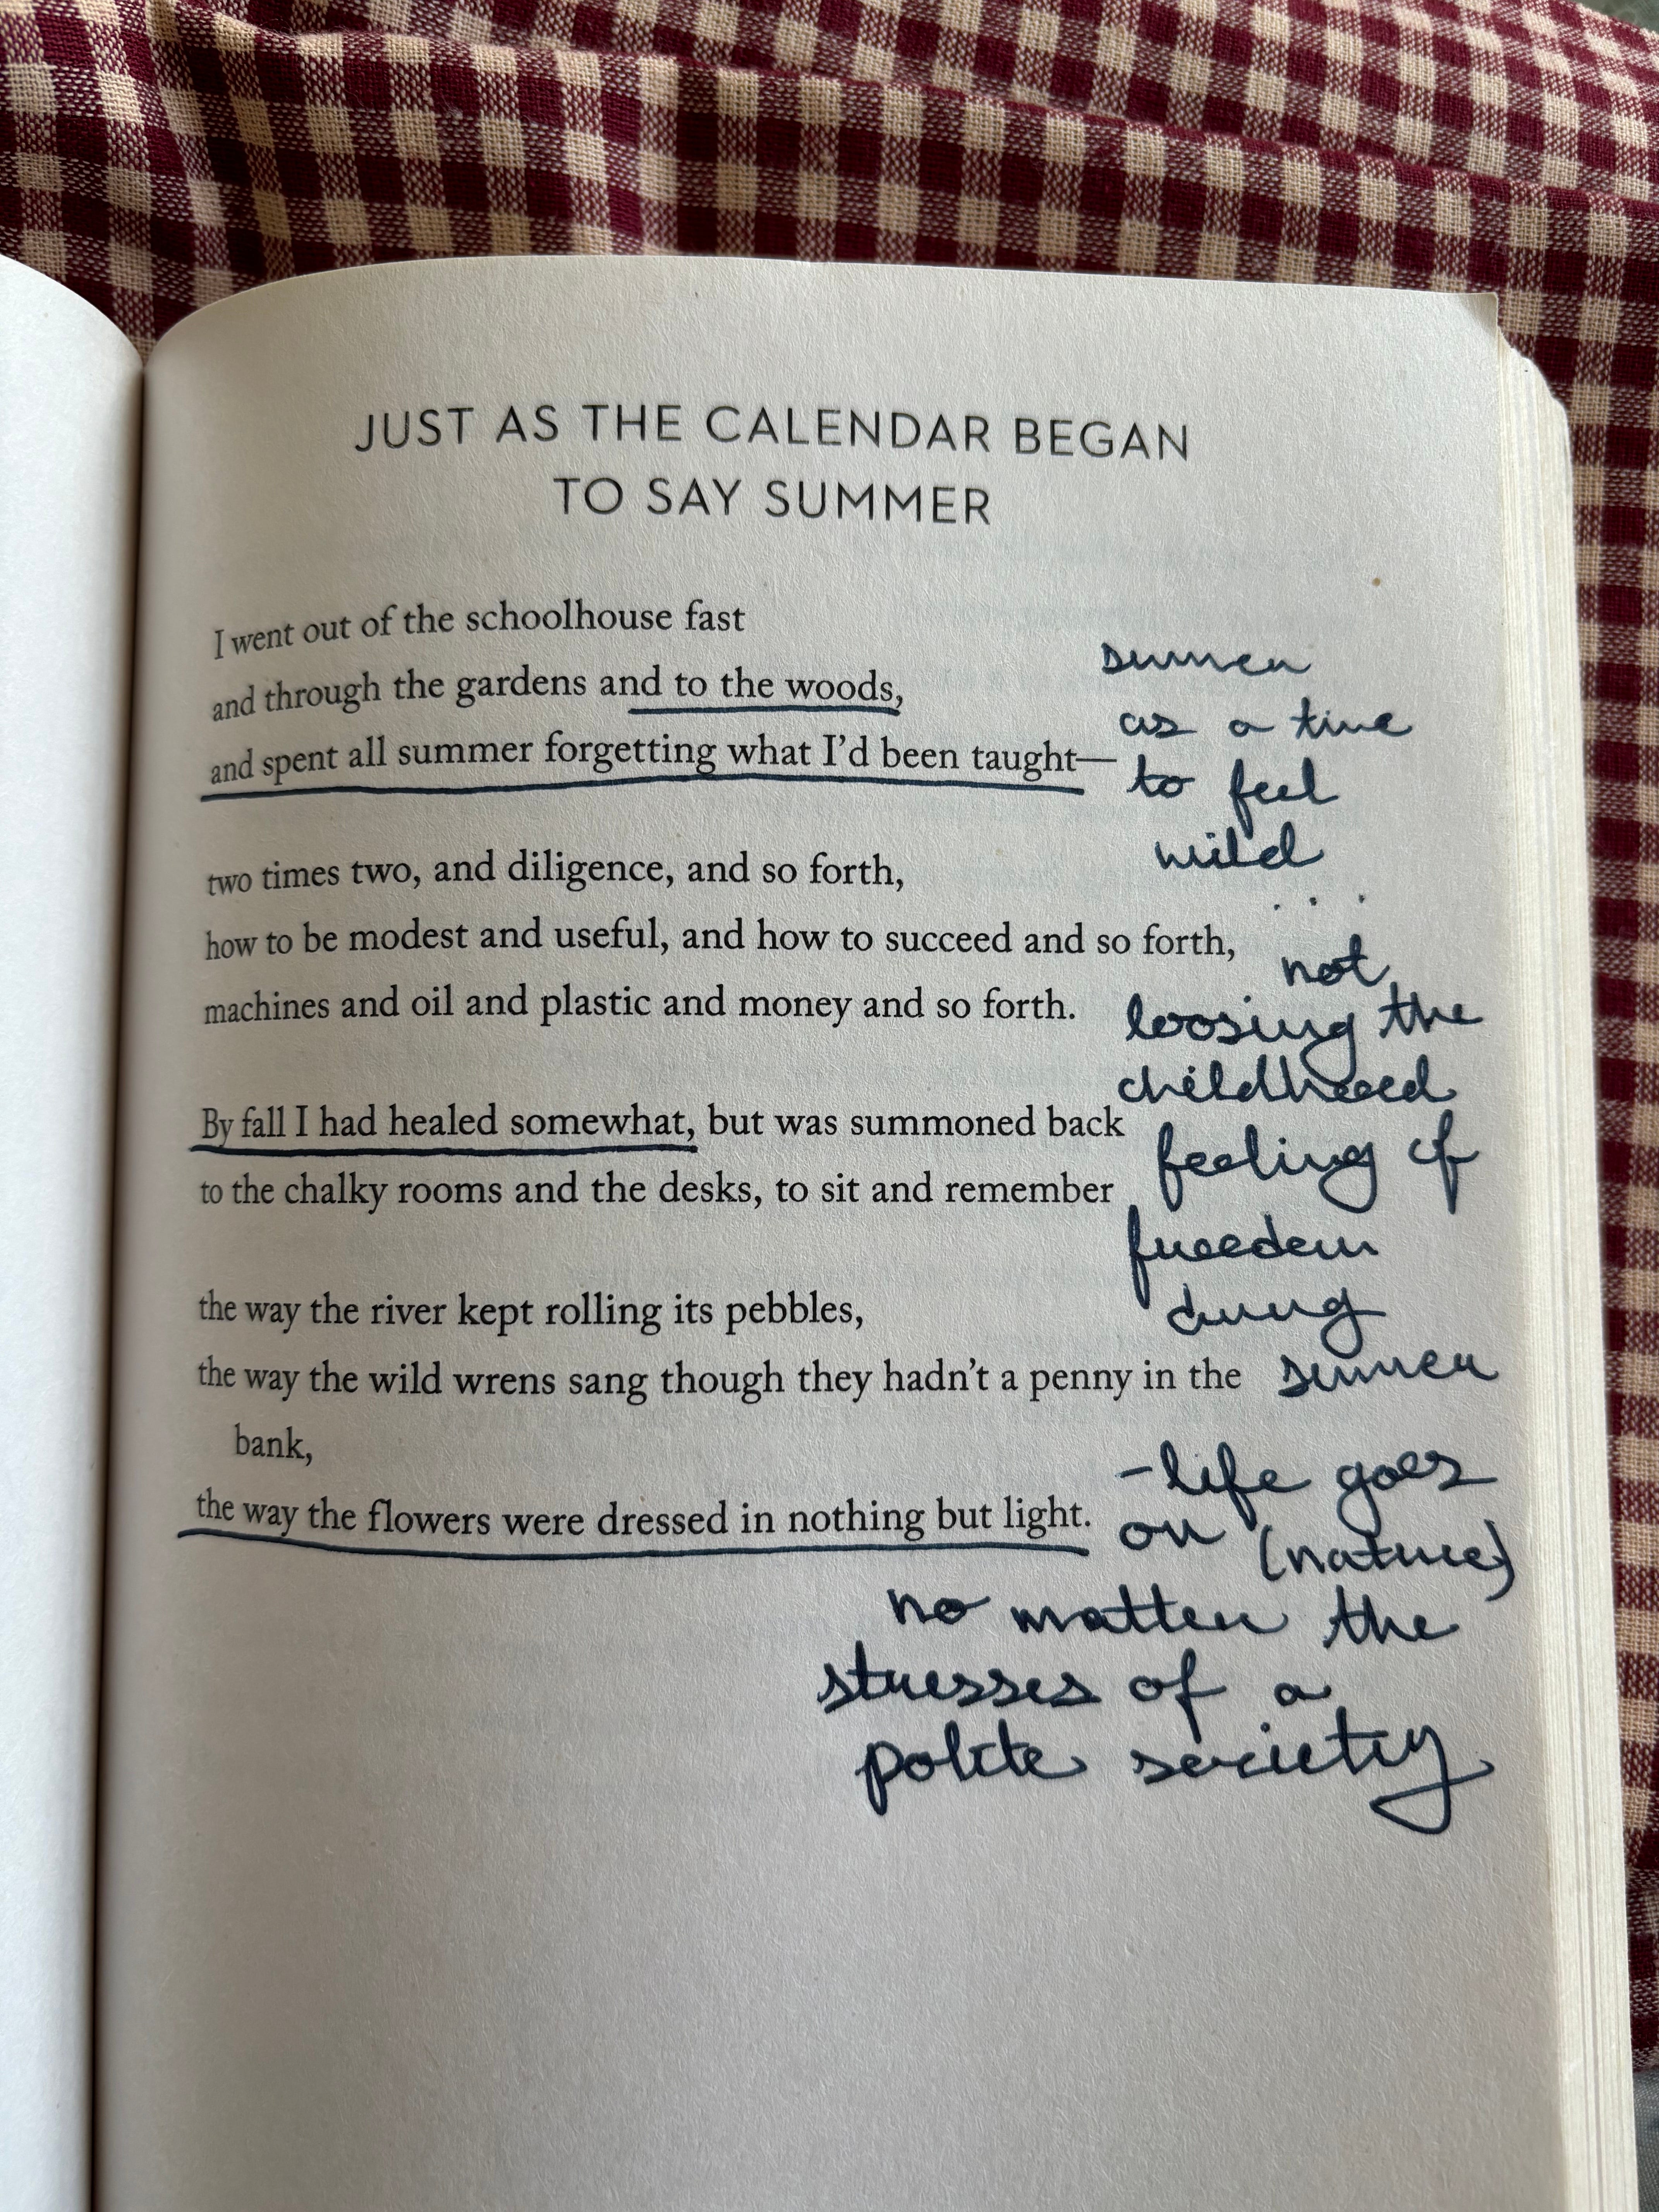 JUST AS THE CALENDAR BEGAN
TO SAY SUMMER
I went out of the schoolhouse fast
and through the gardens and to the woods,
and spent all summer forgetting what I'd been taught—
two times two, and diligence, and so forth,
how to be modest and useful, and how to succeed and so forth,
machines and oil and plastic and money and so forth.
By fall I had healed somewhat, but was summoned back
to the chalky rooms and the desks, to sit and remember
the way the river kept rolling its pebbles,
the way the wild wrens sang though they hadn't a penny in the
bank,
the way the flowers were dressed in nothing but light.
summer
as a time
to feel
wild
...
not
loosing the
childhood
feeling of
freedom
during
summer
-life goes
on (nature)
no matter the
stresses of a
polite society